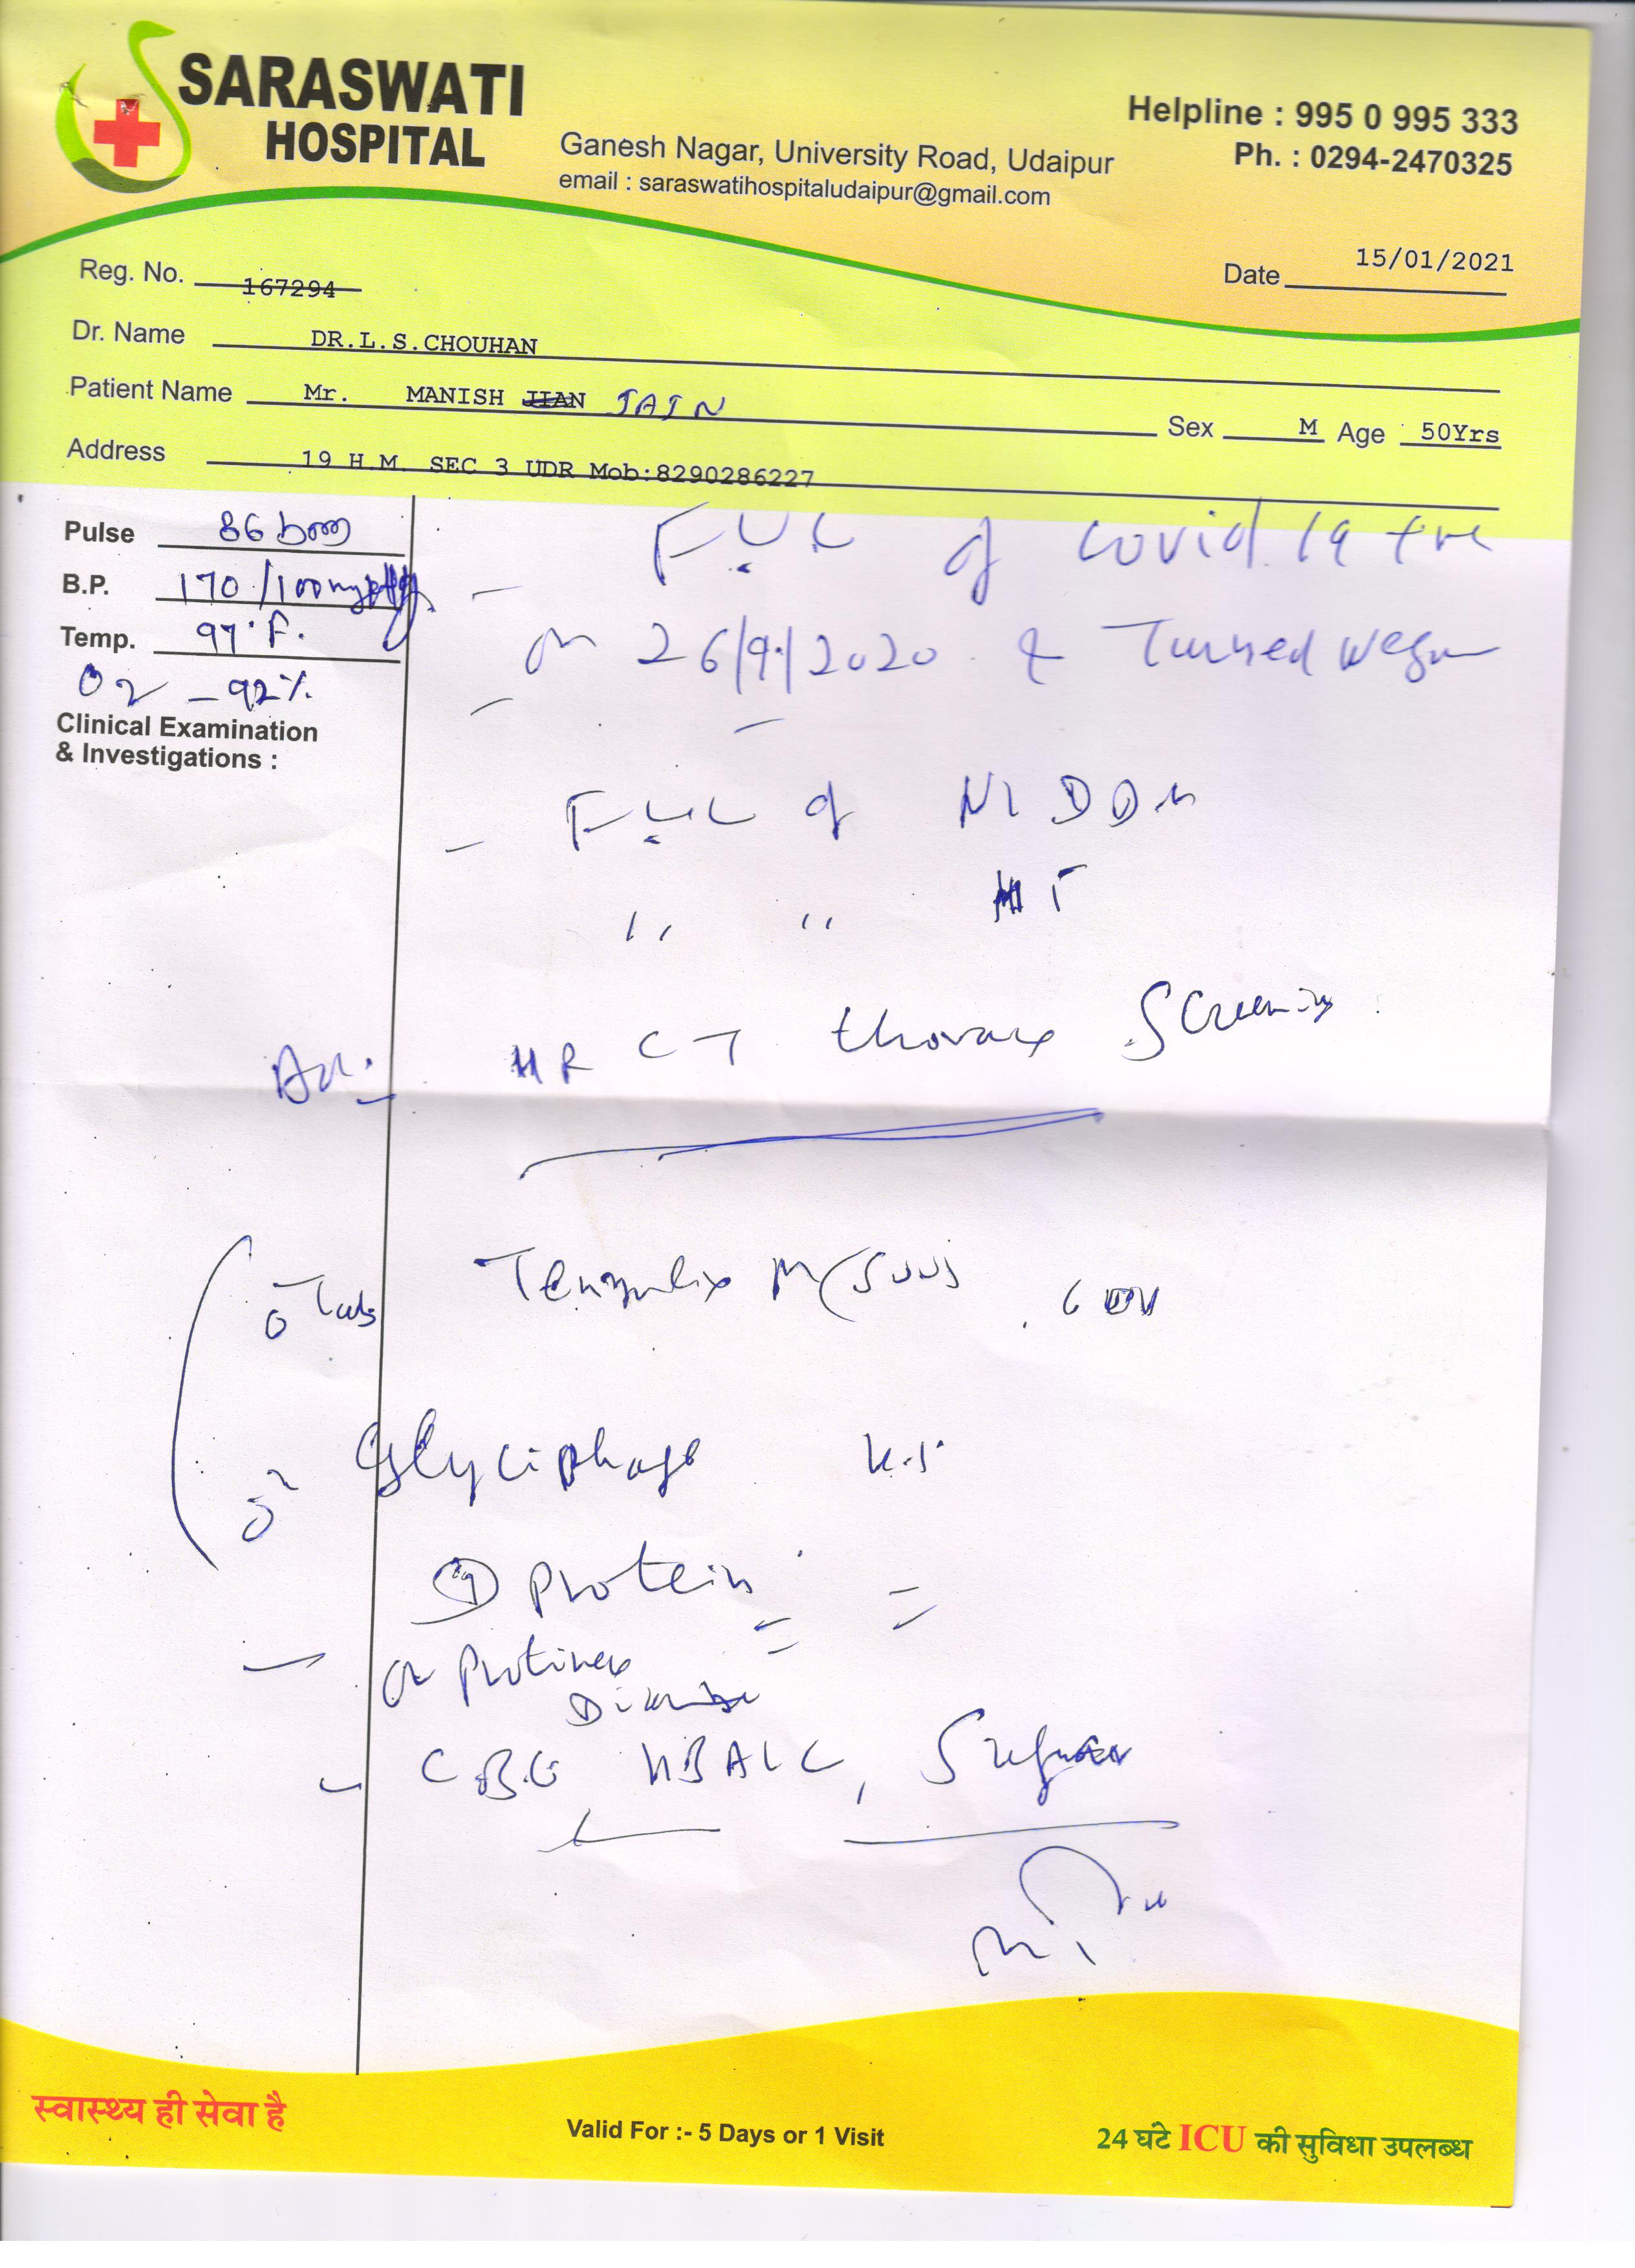 SARASWATI
HOSPITAL
Ganesh Nagar, University Road, Udaipur
email : saraswatihospitaludaipur@gmail.com
Helpline : 995 0 995 333
Ph. : 0294-2470325
Reg. No. 167294
Date 15/01/2021
Dr. Name DR.L.S.CHOUHAN
Patient Name Mr. MANISH JIAN JAIN
Sex M Age 50Yrs
Address 19 H.M. SEC 3 UDR Mob:8290286227
Pulse 86 bpm
B.P. 170/100 mmHg
Temp. 97°F.
O2 - 92%
Clinical Examination
& Investigations :
- F.U.C of Covid 19 +ve
on 26/9/2020 & Turned
- F.U.C of NIDDM
,, ,, HT
Adv. HR CT thorax Screening
Tab M (500)
Glyciphage
Protein
or Protinex
- CBG HBA1C, Sugar
स्वास्थ्य ही सेवा है
Valid For :- 5 Days or 1 Visit
24 घंटे ICU की सुविधा उपलब्ध